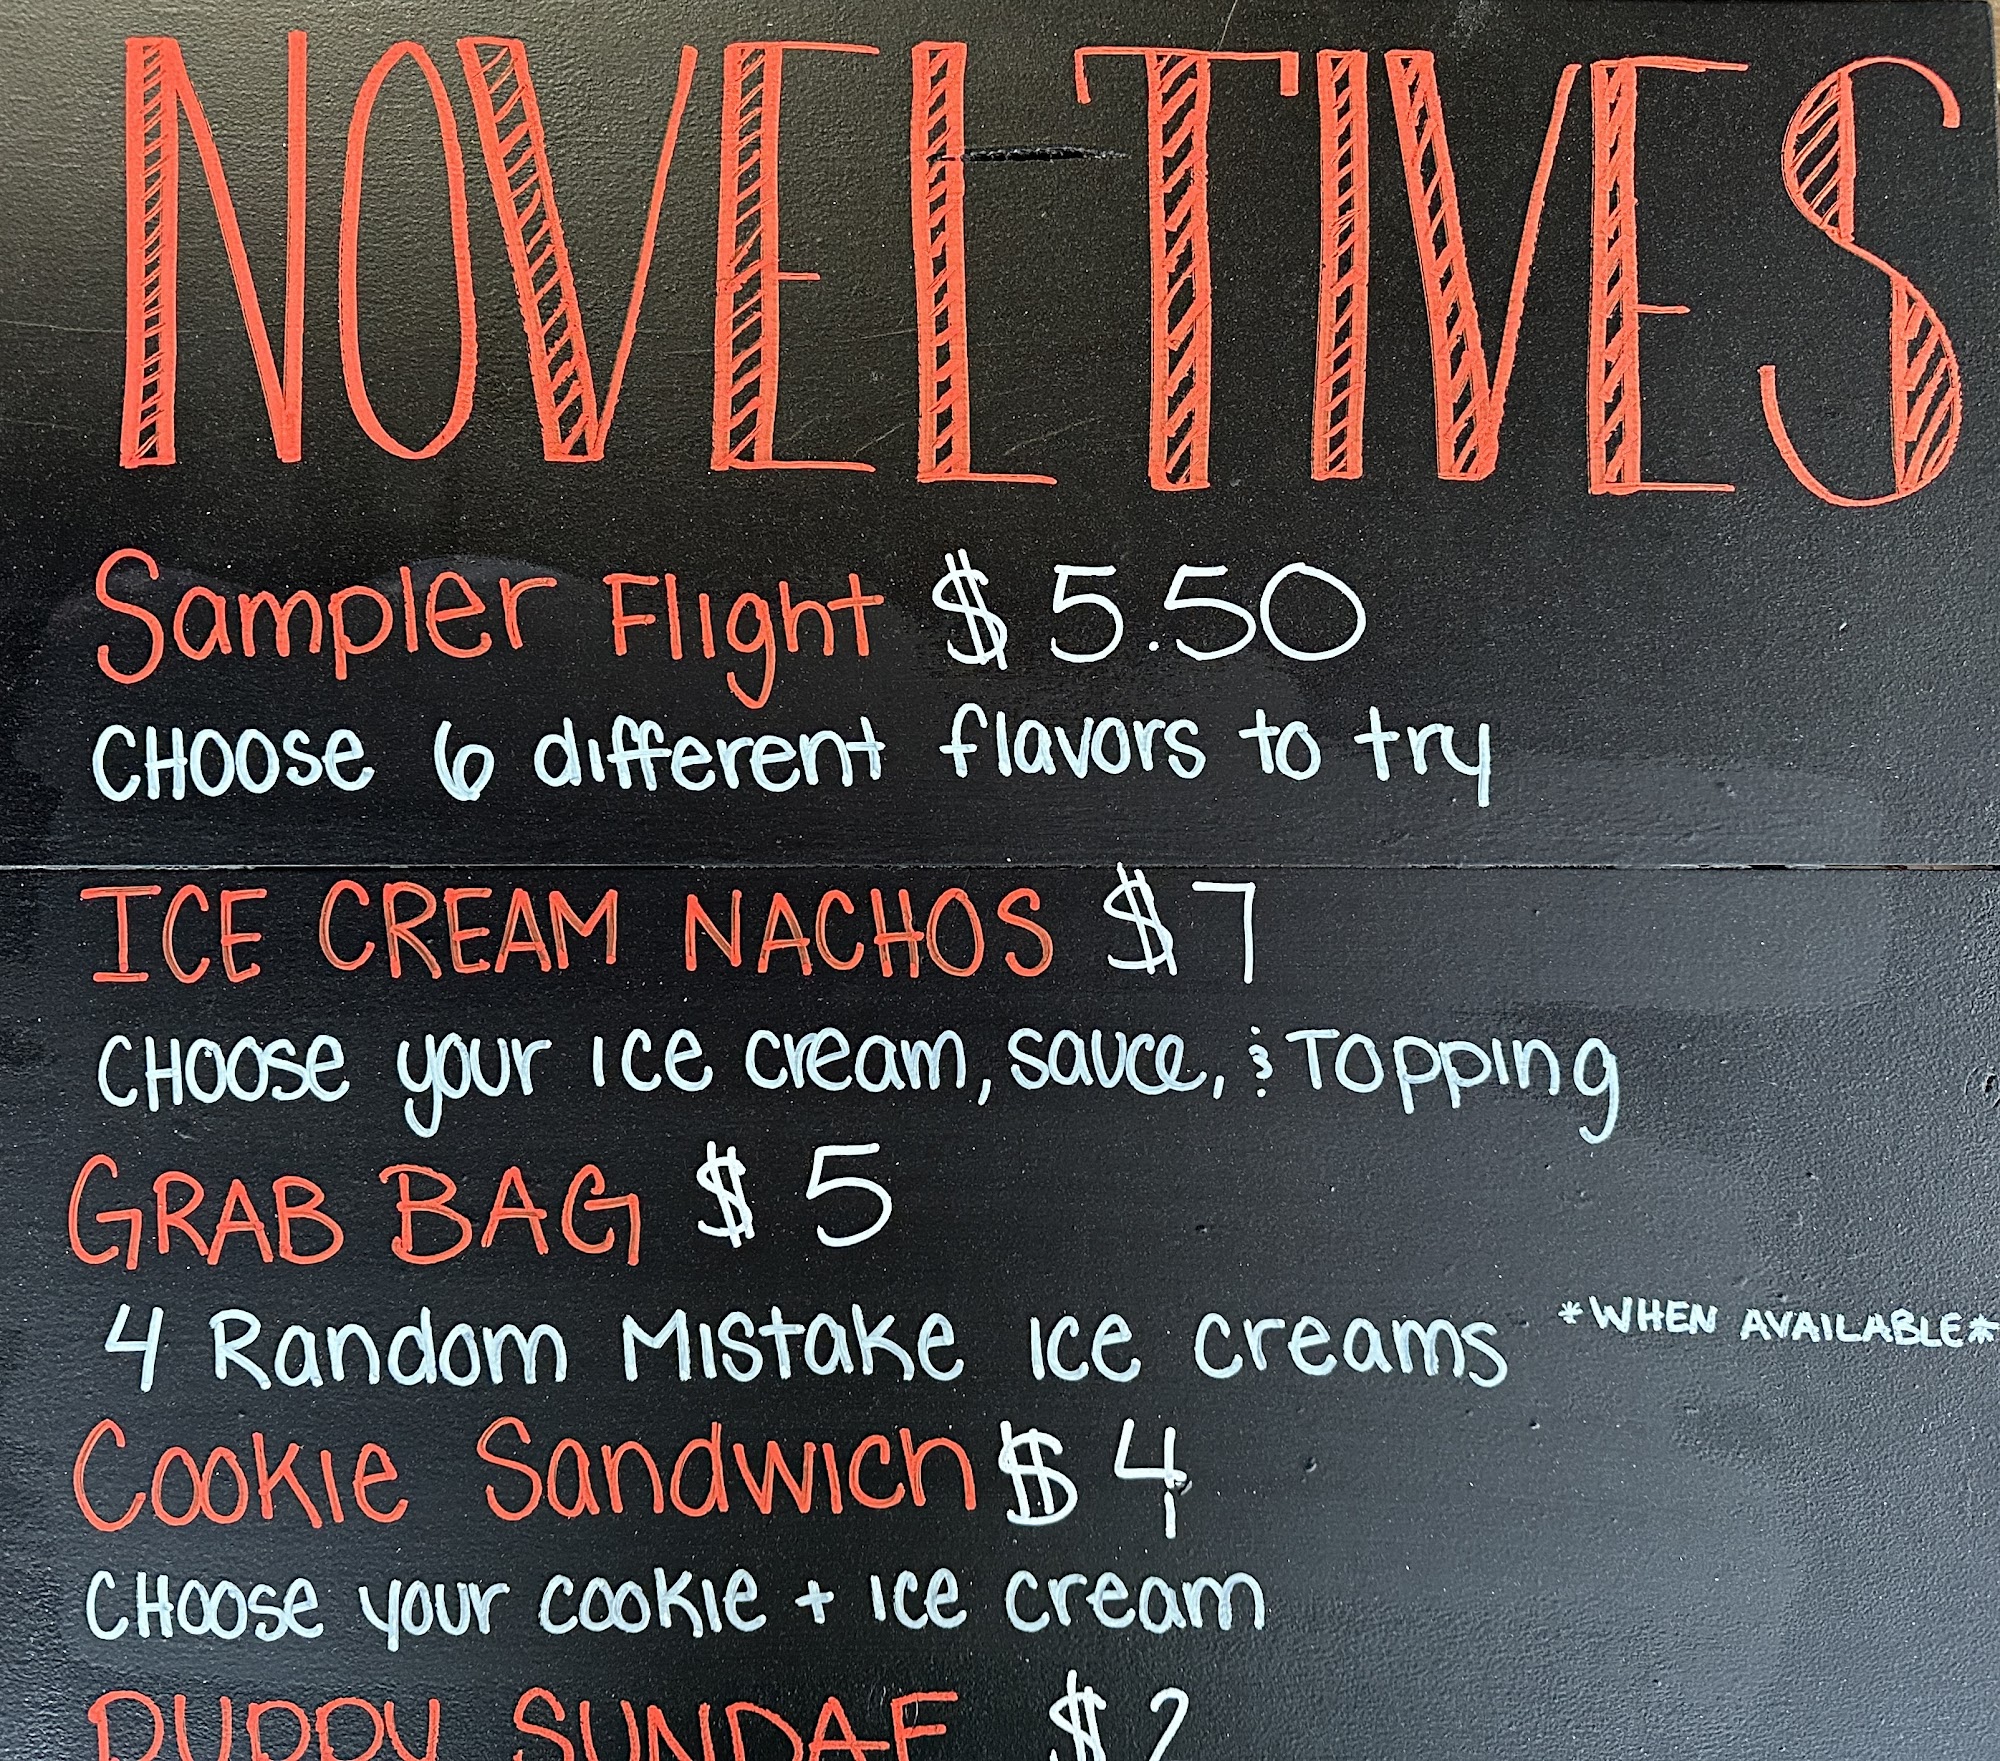 NOVELTIVES
Sampler Flight $5.50
CHOOSE 6 different flavors to try
ICE CREAM NACHOS $7
CHOOSE your ice cream, sauce, & Topping
GRAB BAG $5
4 Random Mistake ice creams *WHEN AVAILABLE*
Cookie Sandwich $4
CHOOSE your cookie + ice cream
PUPPY SUNDAE $2